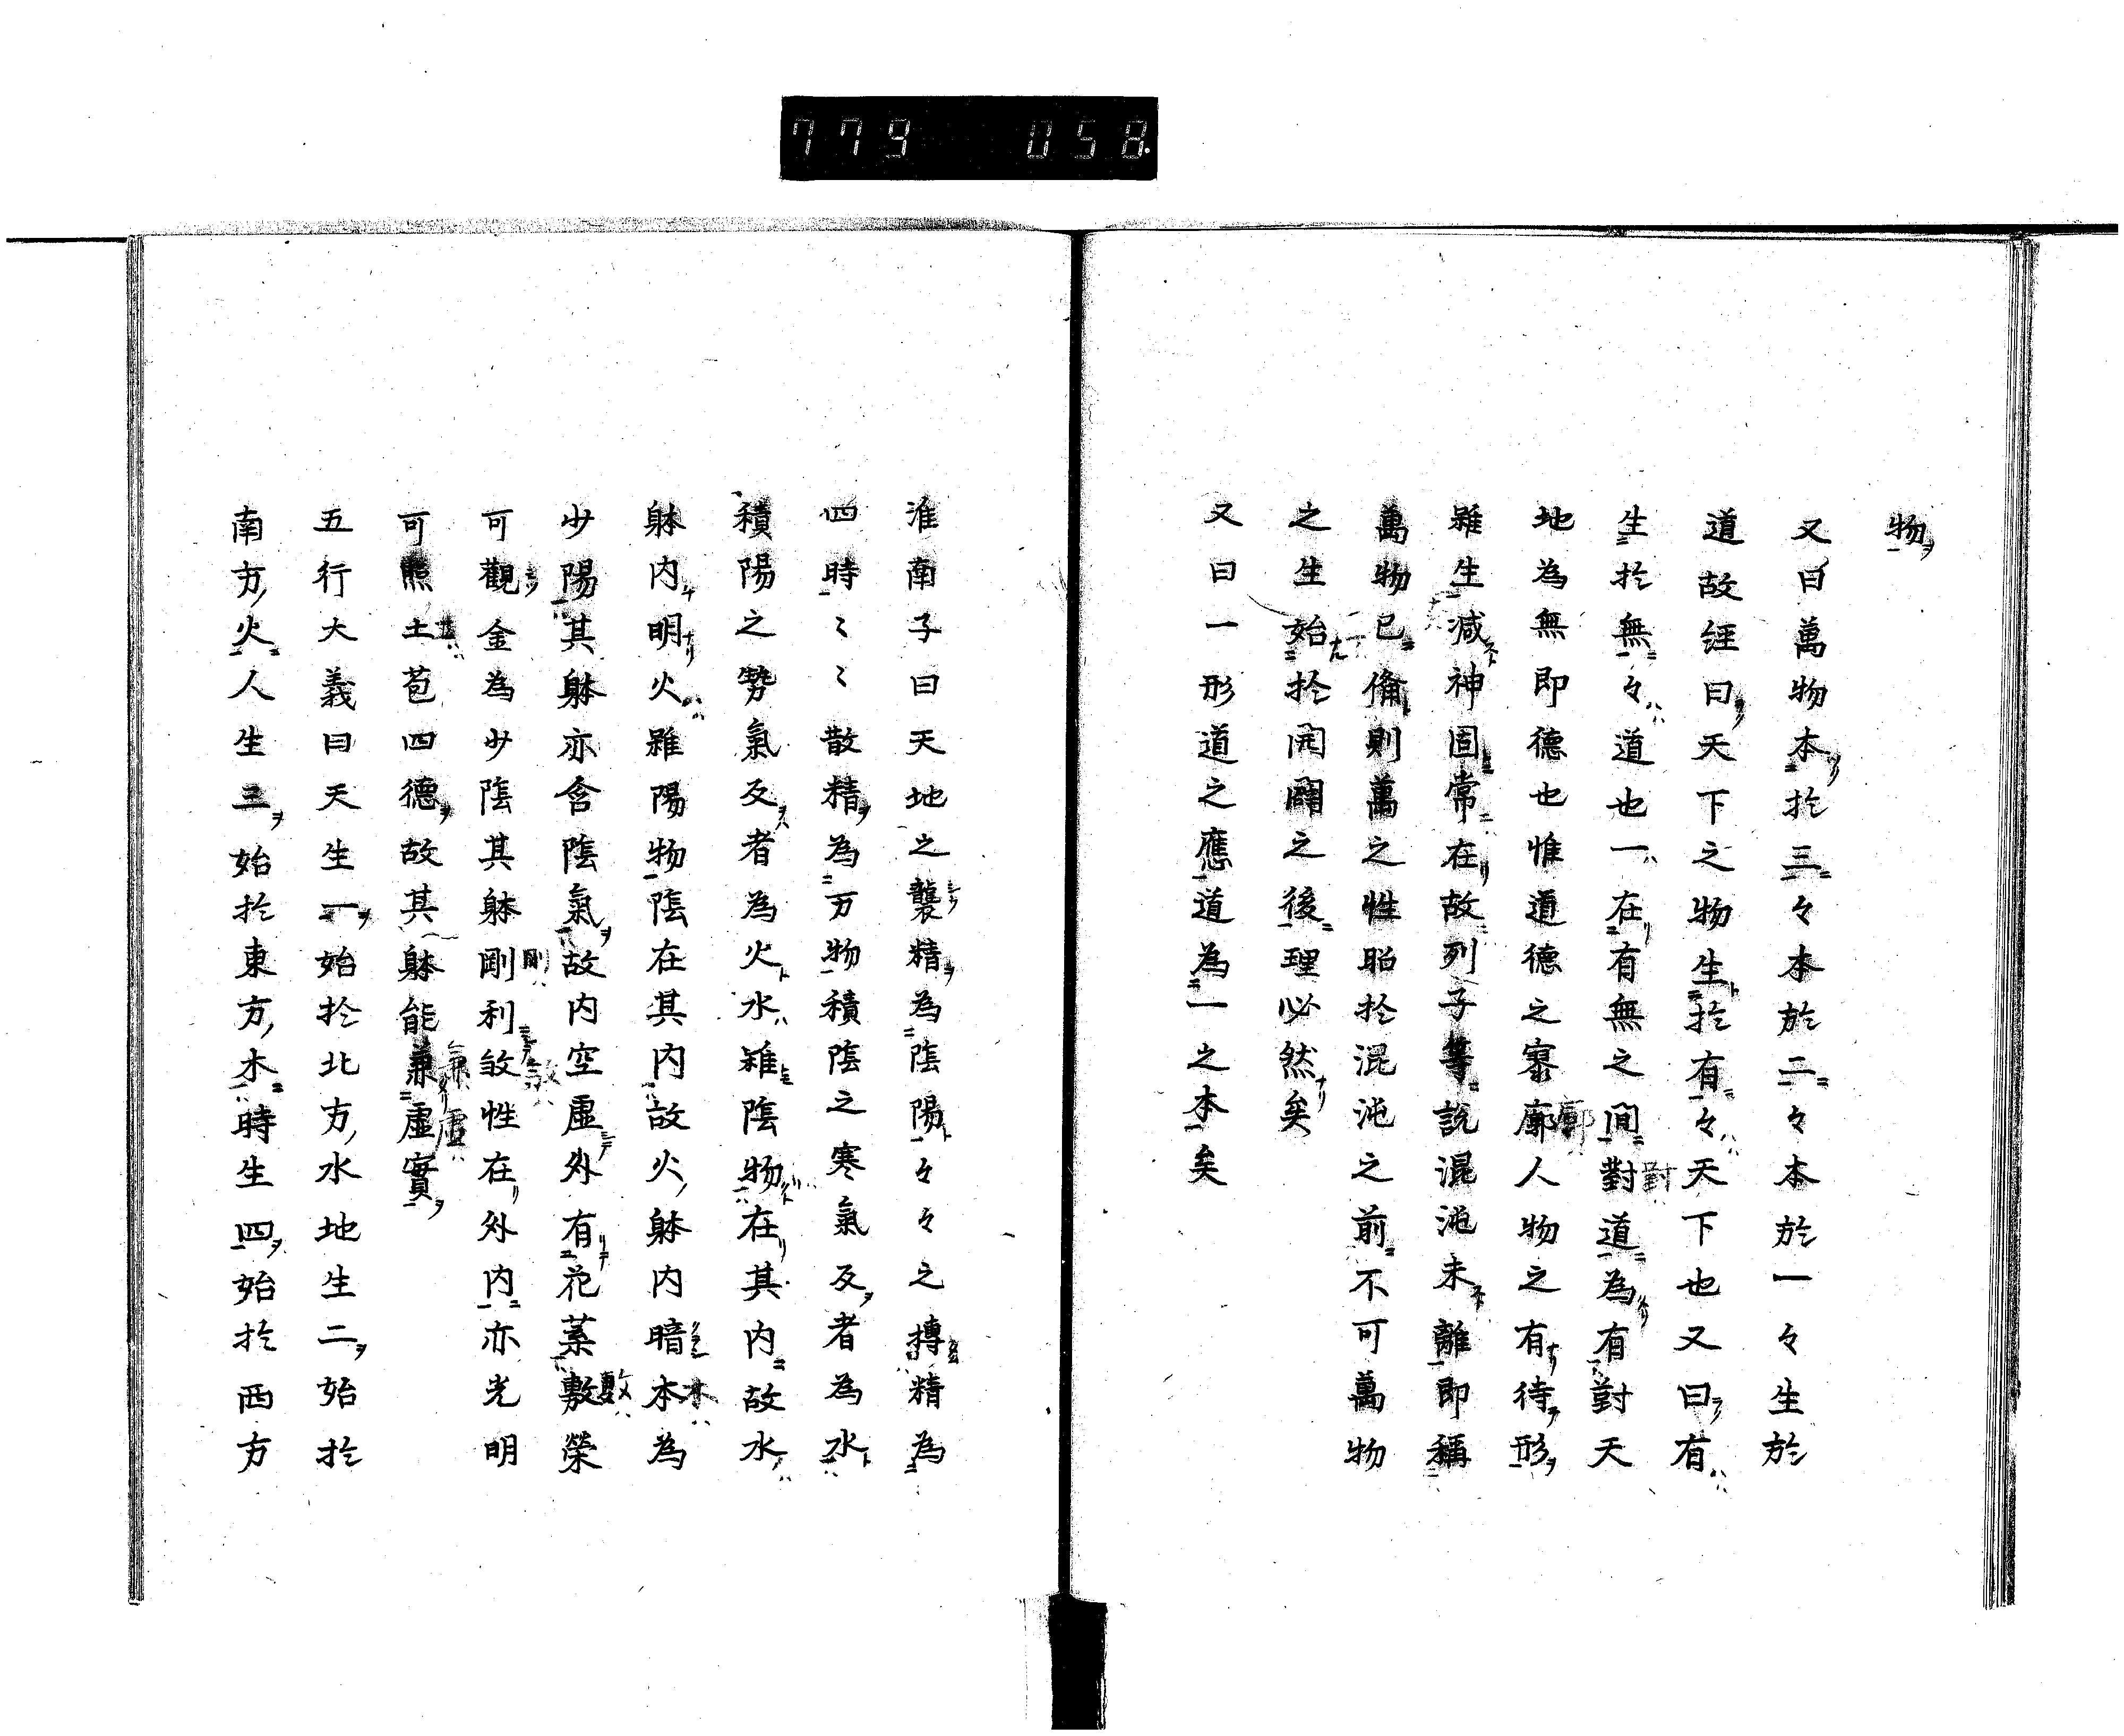 779 058
物
又曰萬物本於三々本於二々本於一々生於
道故経曰天下之物生於有々天下也又曰有
生於無々道也一在有無之間對道為有對天
地為無即德也惟道德之寥廓人物之有待形
雖生減神固常在故列子等說混沌未離即稱
萬物已俻則萬之性眹於混沌之前不可萬物
之生始於開闢之後理必然矣
又曰一形道之應道為一之本矣
淮南子曰天地之襲精為陰陽々々之摶精為
四時〻〻散精為万物積陰之寒氣反者為水
積陽之勢氣反者為火水雖陰物在其内故水
躰内明火雖陽物陰在其内故火躰内暗本為
少陽其躰亦含陰氣故内空虛外有花葉敷榮
可觀金為少陰其躰剛利敛性在外内亦光明
可照土苞四德故其躰能兼虛實
五行大義曰天生一始於北方水地生二始於
南方火人生三始於東方木時生四始於西方